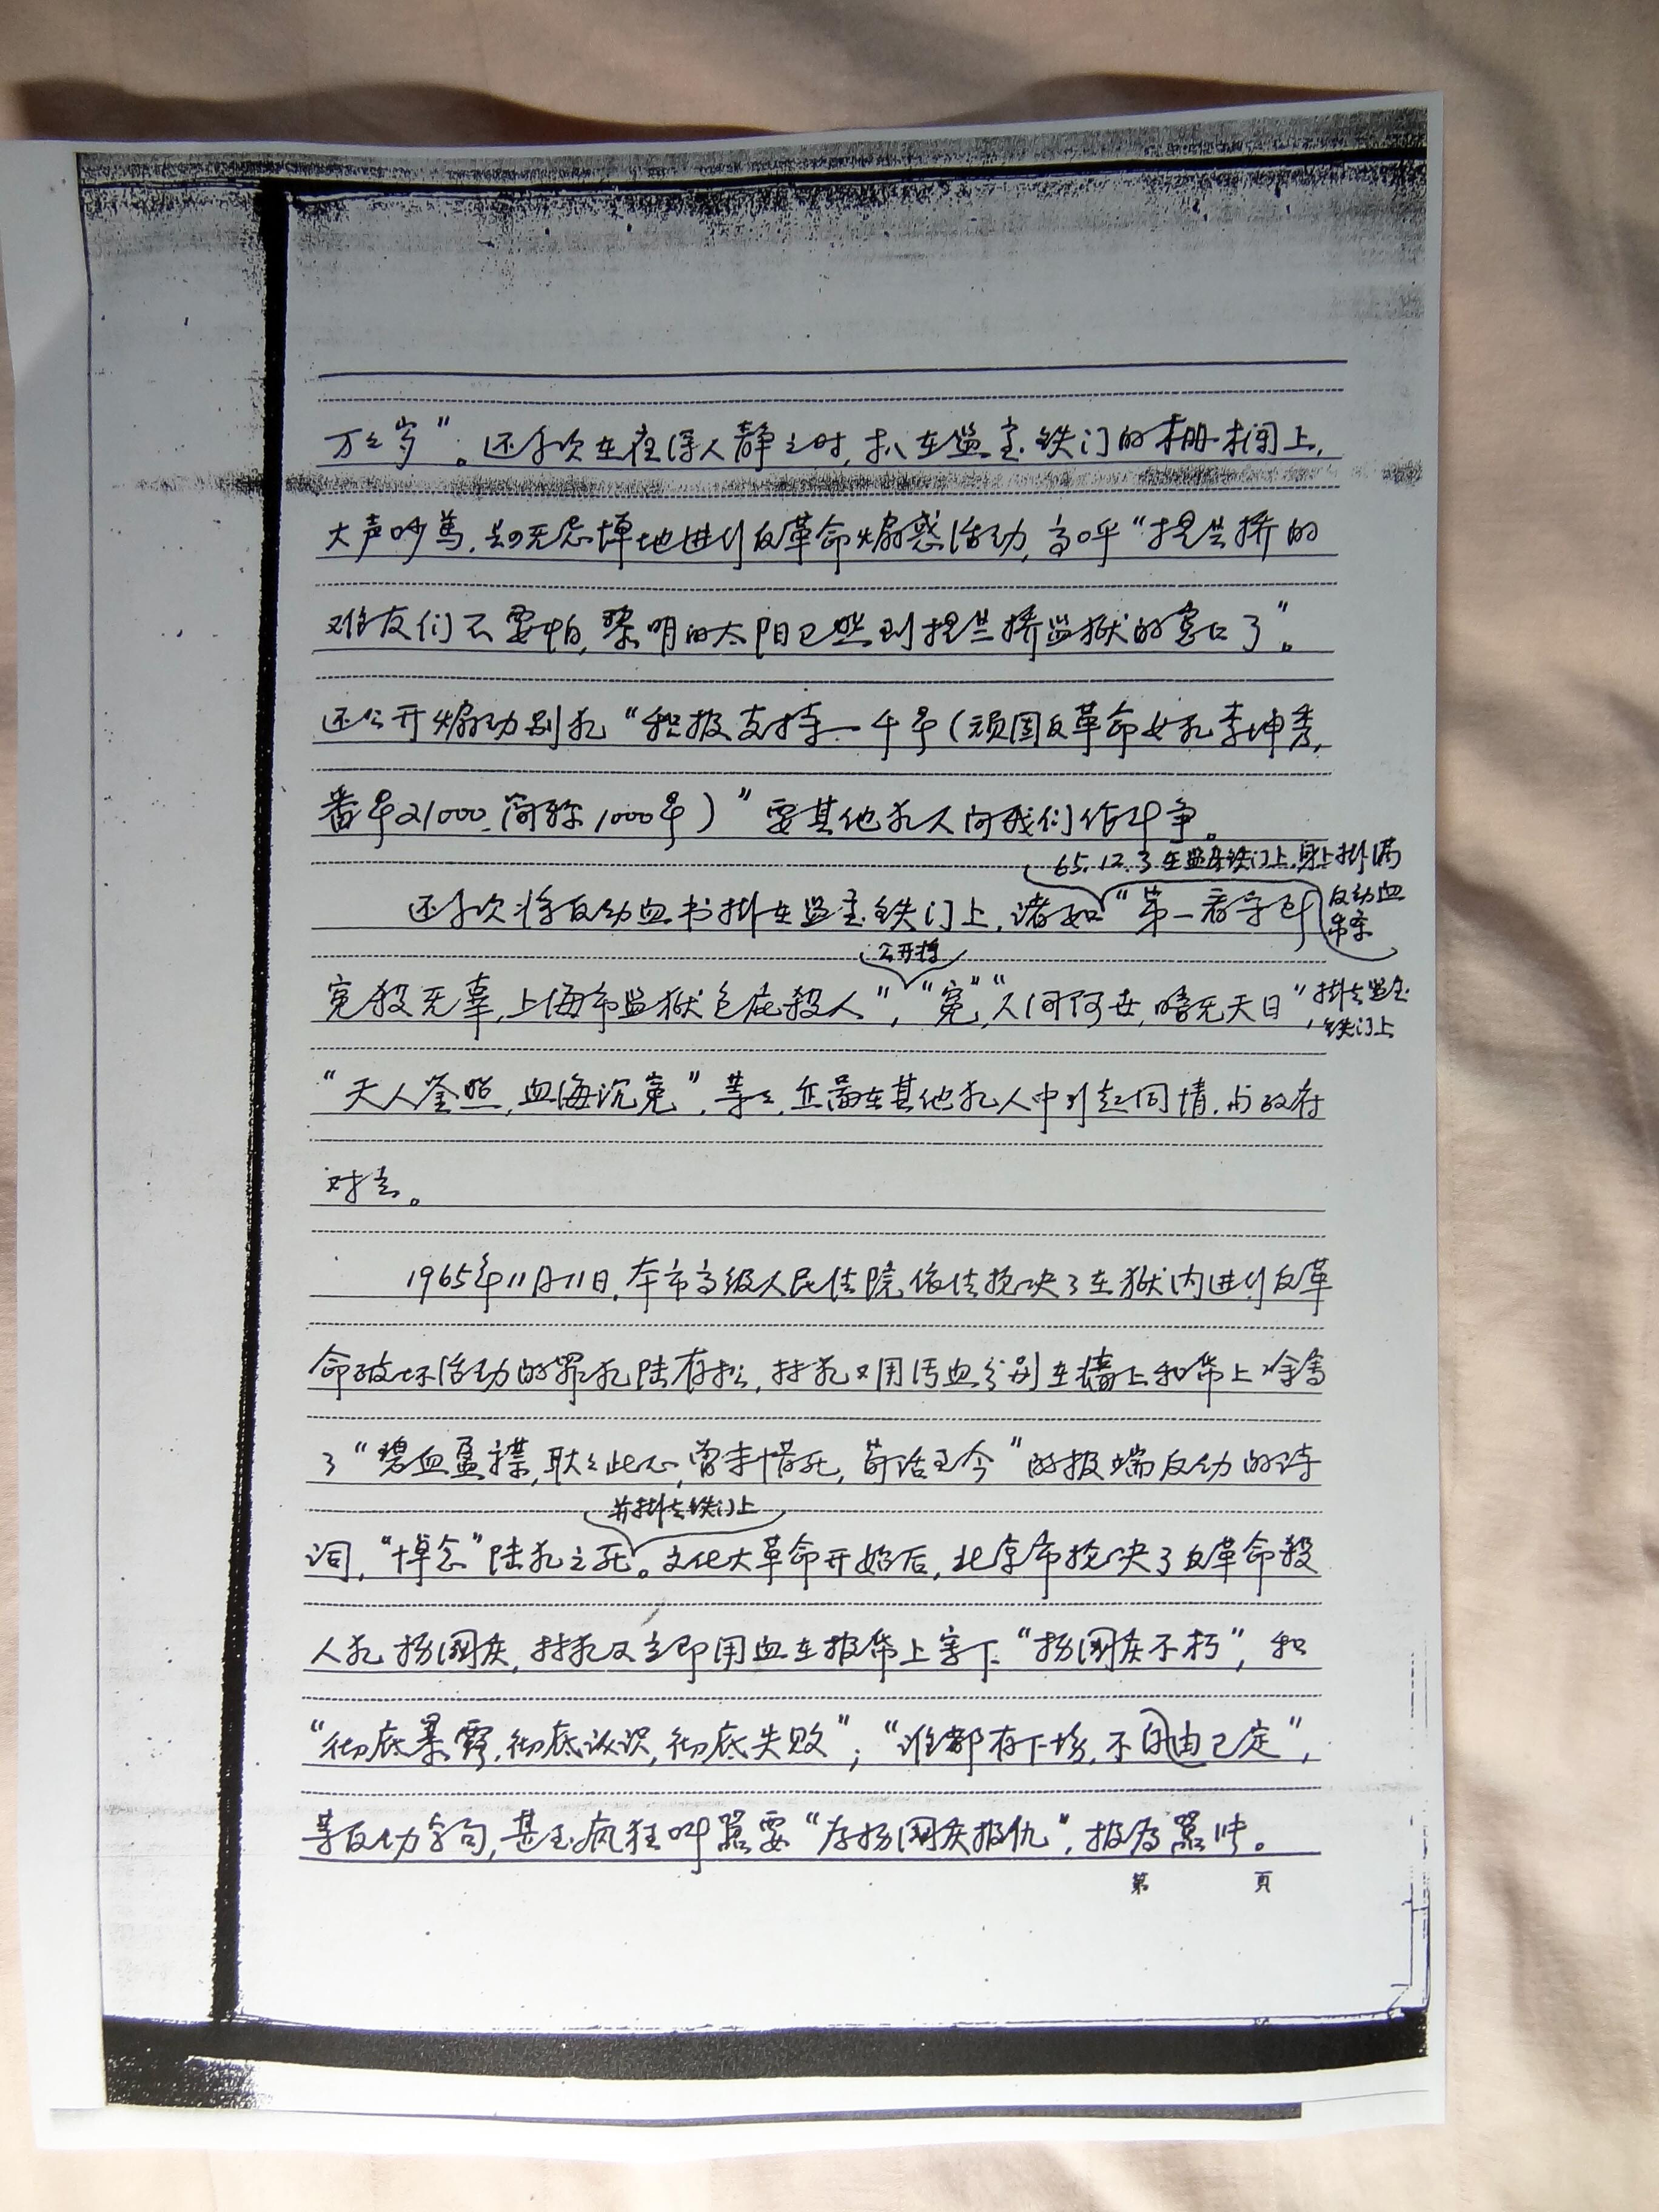 万々岁”。还多次在夜深人静之时，扒在监室铁门的栅栏上，
大声吵骂，肆无忌惮地进行反革命煽惑活动，高呼“提兰桥的
难友们不要怕，黎明的太阳已照到提兰桥监狱的窗口了”。
还公开煽动别犯“积极支持一千号（顽固反革命女犯李坤秀，
番号21000，简称1000号）”要其他犯人向我们作斗争。
65.12.3在监房铁门上，身上掛满
反动血
布条
还多次将反动血书掛在监室铁门上，诸如“第一看守所
公开掛
冤殺无辜，上海市监狱包庇殺人”，“冤”，“人间何世，暗无天日”，
掛在监室
铁门上
“天人鉴照，血海沉冤”，等々，企图在其他犯人中引起同情，与政府
对立。
1965年11月11日，本市高级人民法院依法枪决了在狱内进行反革
命破坏活动的罪犯陆有松，林犯又用污血分别在墙上和布上涂写
了“碧血盈襟，耿々此心，曾未惜死，苟活至今”的极端反动的诗
并掛在铁门上
词，“悼念”陆犯之死。文化大革命开始后，北京市枪决了反革命殺
人犯杨国庆，林犯又立即用血在报纸上写下“杨国庆不朽”，和
“彻底暴露，彻底认识，彻底失败”；“谁都有下场，不自由己定”，
等反动字句，甚至疯狂叫嚣要“为杨国庆报仇”，极为嚣张。
第 页